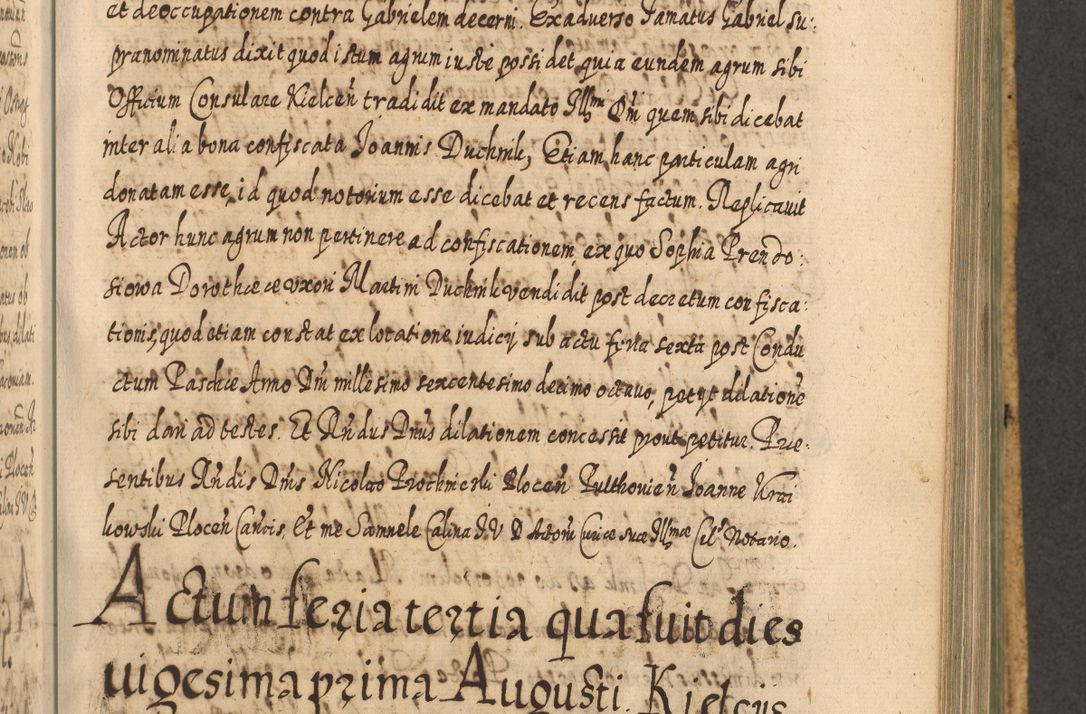 et deoccupationem contra Gabrielem decerni. Ex adverso Famatus Gabriel su:
pranominatus dixit quod istum agrum iuste possidet quia eundem agrum sibi
Officium Consulare Kielceñ tradidit ex mandato Illmi Dñi quem sibi dicebat
inter alia bona confiscata Joannis Duchnik, Etiam hanc particulam agri
donatam esse, id quod notorium esse dicebat et recens factum. Replicavit
Actor hunc agrum non pertinere ad confiscationem, ex quo Sophia Prendo:
siowa Dorotheæ uxori Martini Duchnik vendidit post decretum confisca:
tionis, quod etiam constat ex locatione iudicij sub actu feria sexta post Condu
ctum Paschæ Anno Dñi millesimo sexcentesimo decimo octavo, petijt dilationẽ
sibi dari ad testes. Et Rñdus Dnus dilationem concessit prout petitur. Præ:
sentibus Rñdis Dnis Nicolao Prochnicski Plocen̄ Pulthovien̄ Joanne Krai
kowski Plocen̄ Can̄cis. Et me Samuele Calina J. V. D Actorũ Curiæ suæ Illmæ Cels Notario.
Actum feria tertia qua fuit dies
vigesima prima Augusti. Kielcijs